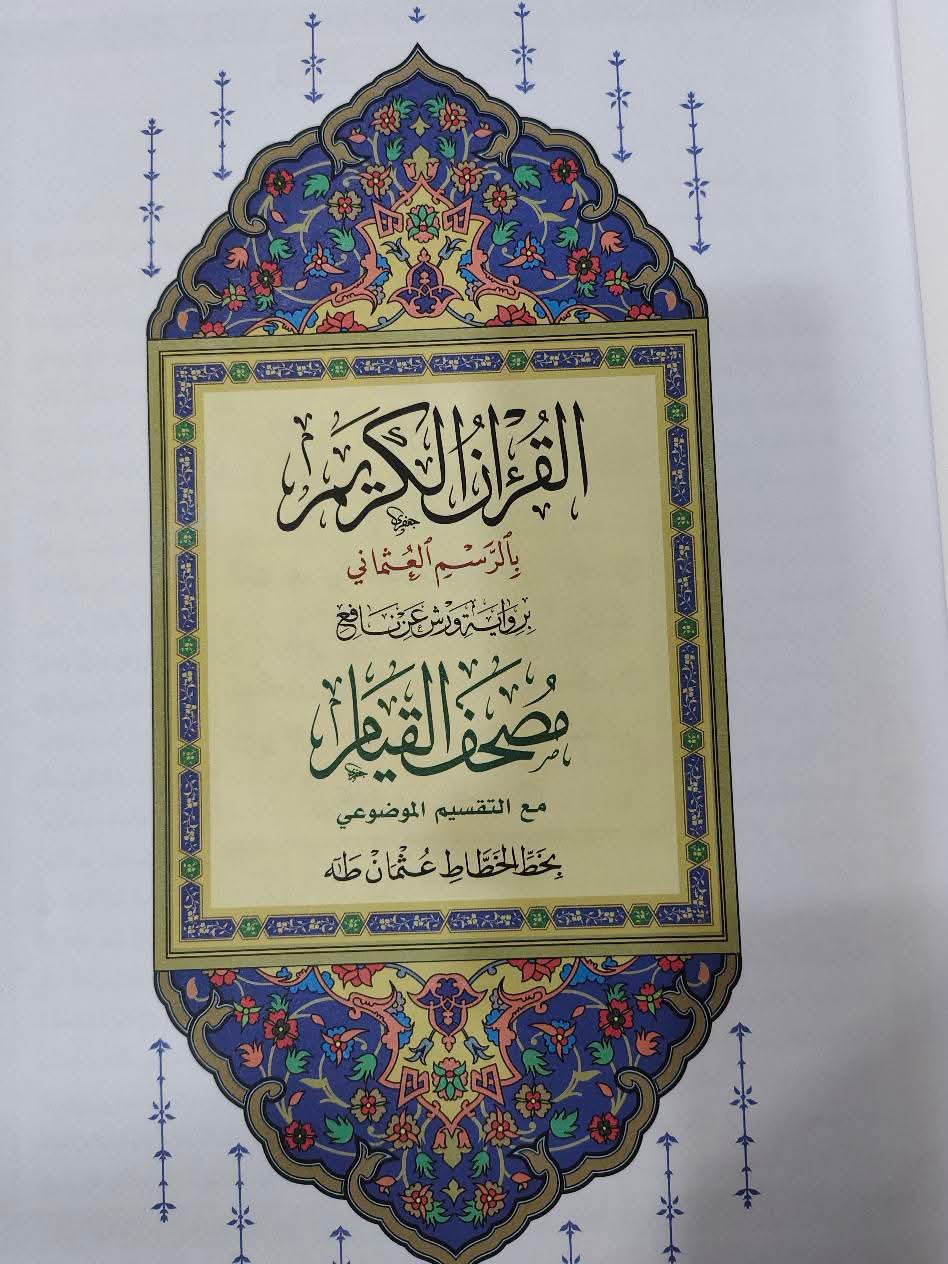 القُرْءَانُ الكَرِيمُ
بِالرَّسْمِ العُثْمَانِي
بِرِوَايَةِ وَرْشٍ عَنْ نَافِعٍ
مُصْحَفُ القِيَامِ
مع التقسيم الموضوعي
بِخَطِّ الخَطَّاطِ عُثْمَانْ طَهَ